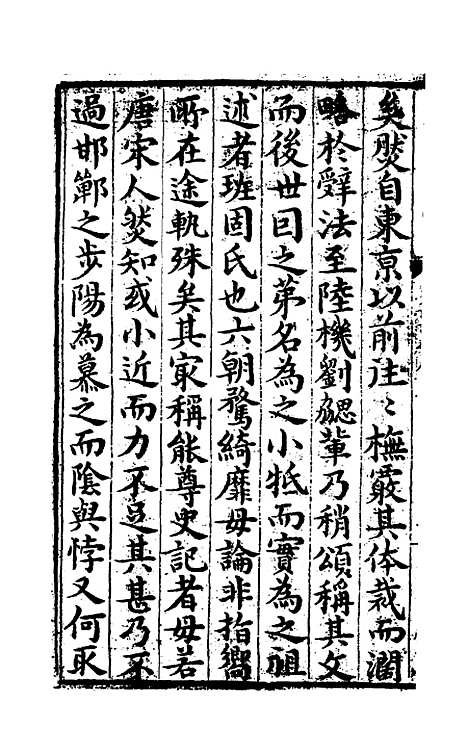 矣然自東京以前往〻橅覈其体裁而濶
略於辭法至陸機劉勰輩乃稍頌稱其文
而後世因之苐名為之小牴而實為之祖
述者班固氏也六朝騖綺靡毋論非指嚮
所在途軌殊矣其㝡稱能尊史記者毋若
唐宋人然知或小近而力不足其甚乃不
過邯鄲之步陽為慕之而陰與悖又何取